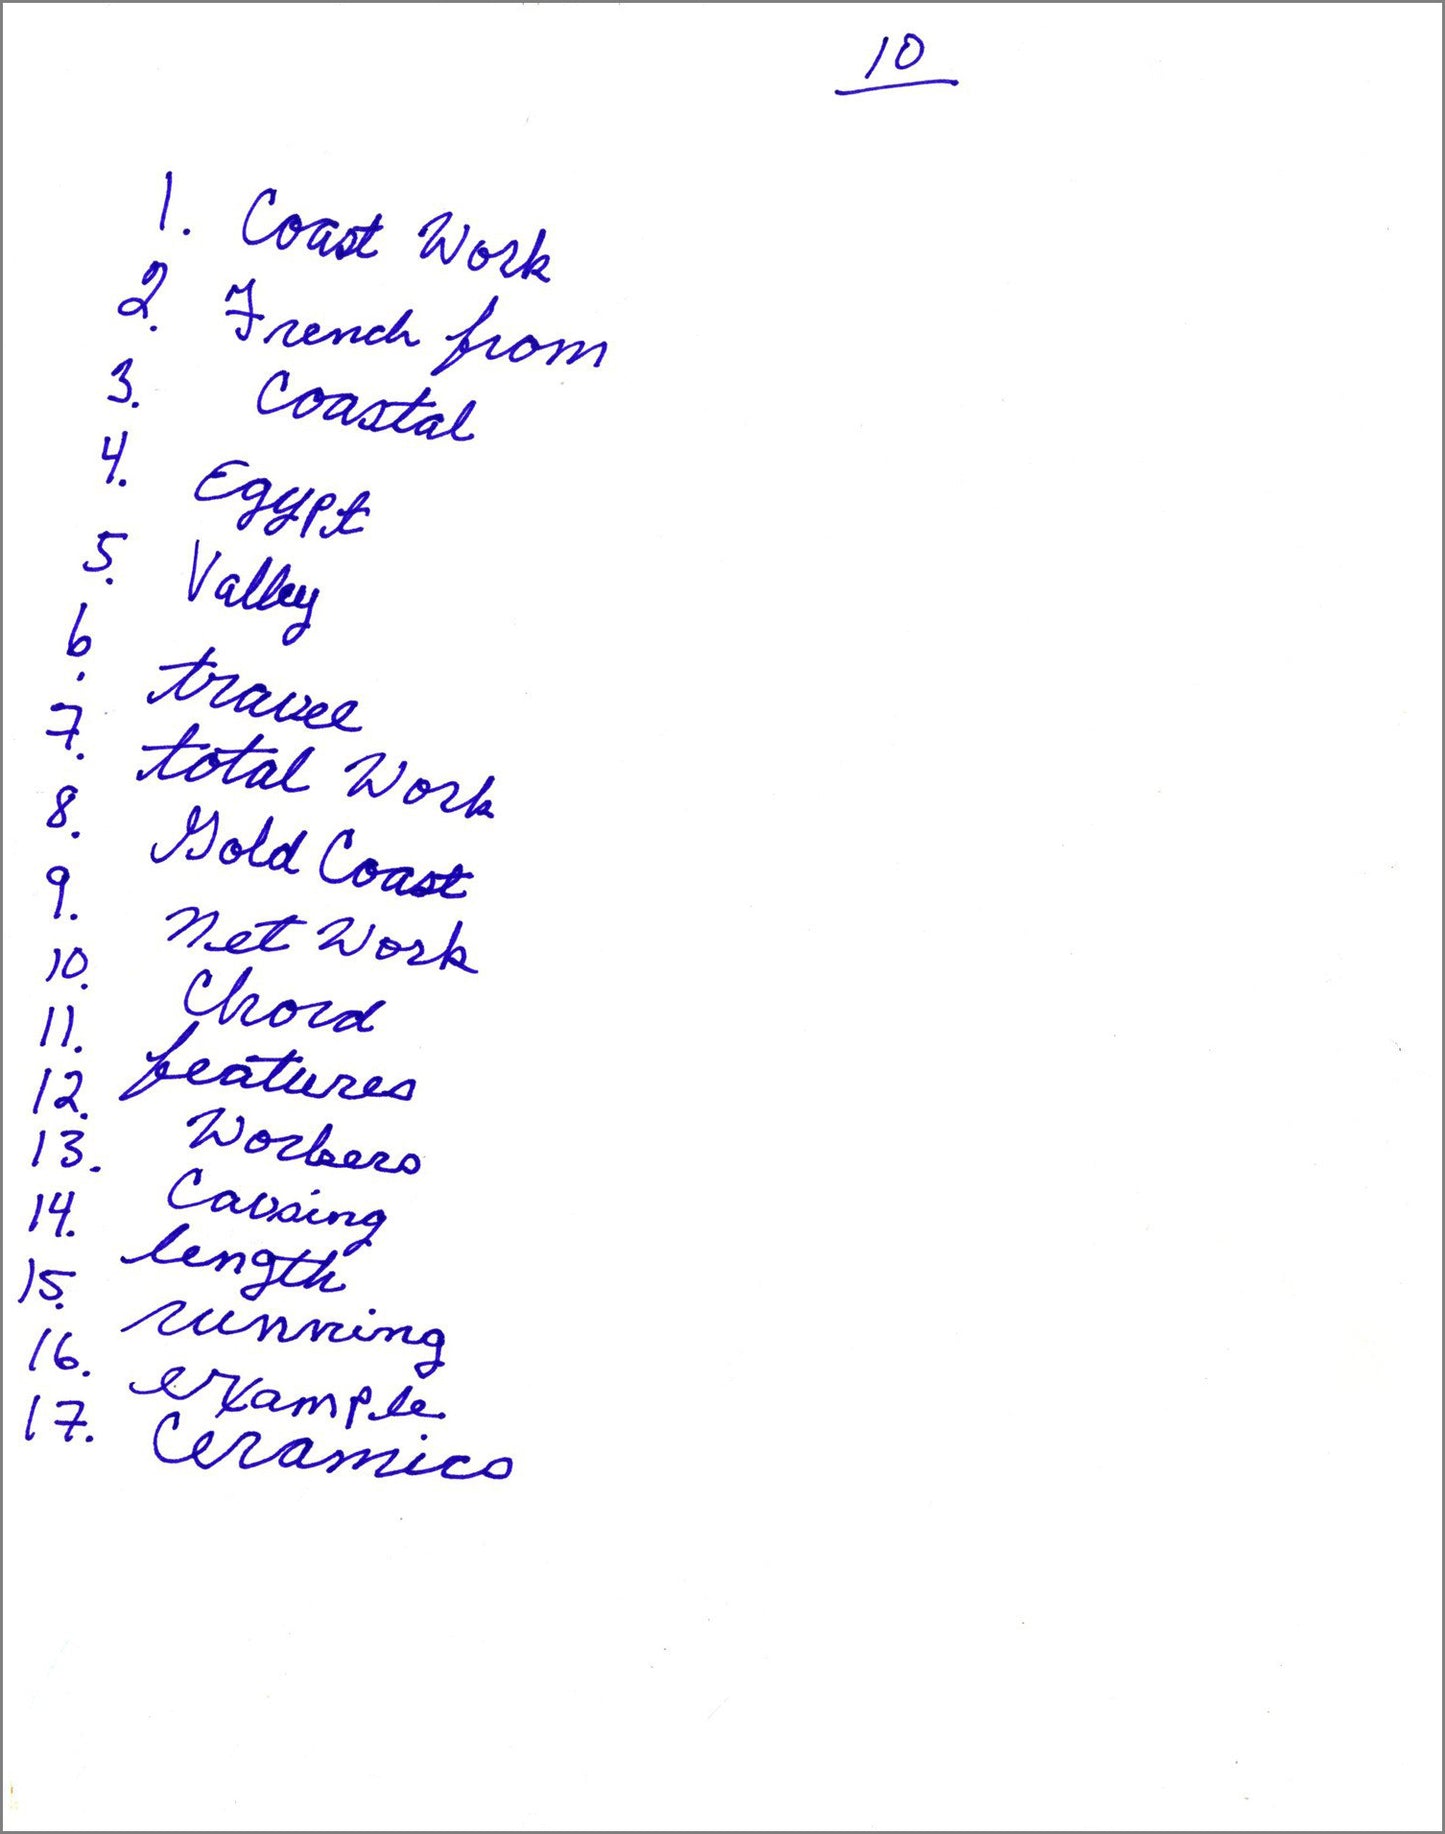 10
1. Coast Work
2. French from
3. Coastal
4. Egypt
5. Valley
6. travel
7. total Work
8. Gold Coast
9. Net Work
10. Chord
11. features
12. Workers
13. Causing
14. length
15. running
16. example
17. Ceramics